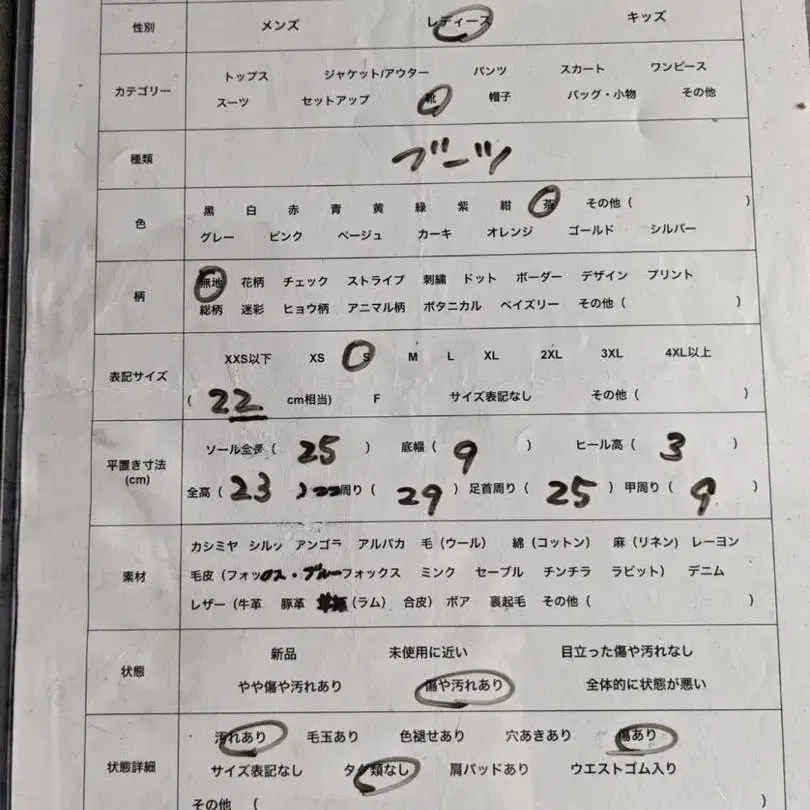 性別 メンズ レディース キッズ
カテゴリー
トップス ジャケット/アウター パンツ スカート ワンピース
スーツ セットアップ 靴 帽子 バッグ・小物 その他
種類 ブーツ
色
黒 白 赤 青 黄 緑 紫 紺 茶 その他 ( )
グレー ピンク ベージュ カーキ オレンジ ゴールド シルバー
柄
無地 花柄 チェック ストライプ 刺繍 ドット ボーダー デザイン プリント
総柄 迷彩 ヒョウ柄 アニマル柄 ボタニカル ペイズリー その他 ( )
表記サイズ
XXS以下 XS S M L XL 2XL 3XL 4XL以上
( 22 cm相当) F サイズ表記なし その他 ( )
平置き寸法
(cm)
ソール全長 ( 25 ) 底幅 ( 9 ) ヒール高 ( 3 )
全高 ( 23 周り ( 29 ) 足首周り ( 25 ) 甲周り ( 9 )
素材
カシミヤ シルク アンゴラ アルパカ 毛 (ウール) 綿 (コットン) 麻 (リネン) レーヨン
毛皮 (フォックス・ブルーフォックス ミンク セーブル チンチラ ラビット) デニム
レザー (牛革 豚革 (ラム) 合皮) ボア 裏起毛 その他 ( )
状態
新品 未使用に近い 目立った傷や汚れなし
やや傷や汚れあり 傷や汚れあり 全体的に状態が悪い
状態詳細
汚れあり 毛玉あり 色褪せあり 穴あきあり 傷あり
サイズ表記なし タグ類なし 肩パッドあり ウエストゴム入り
その他 ( )